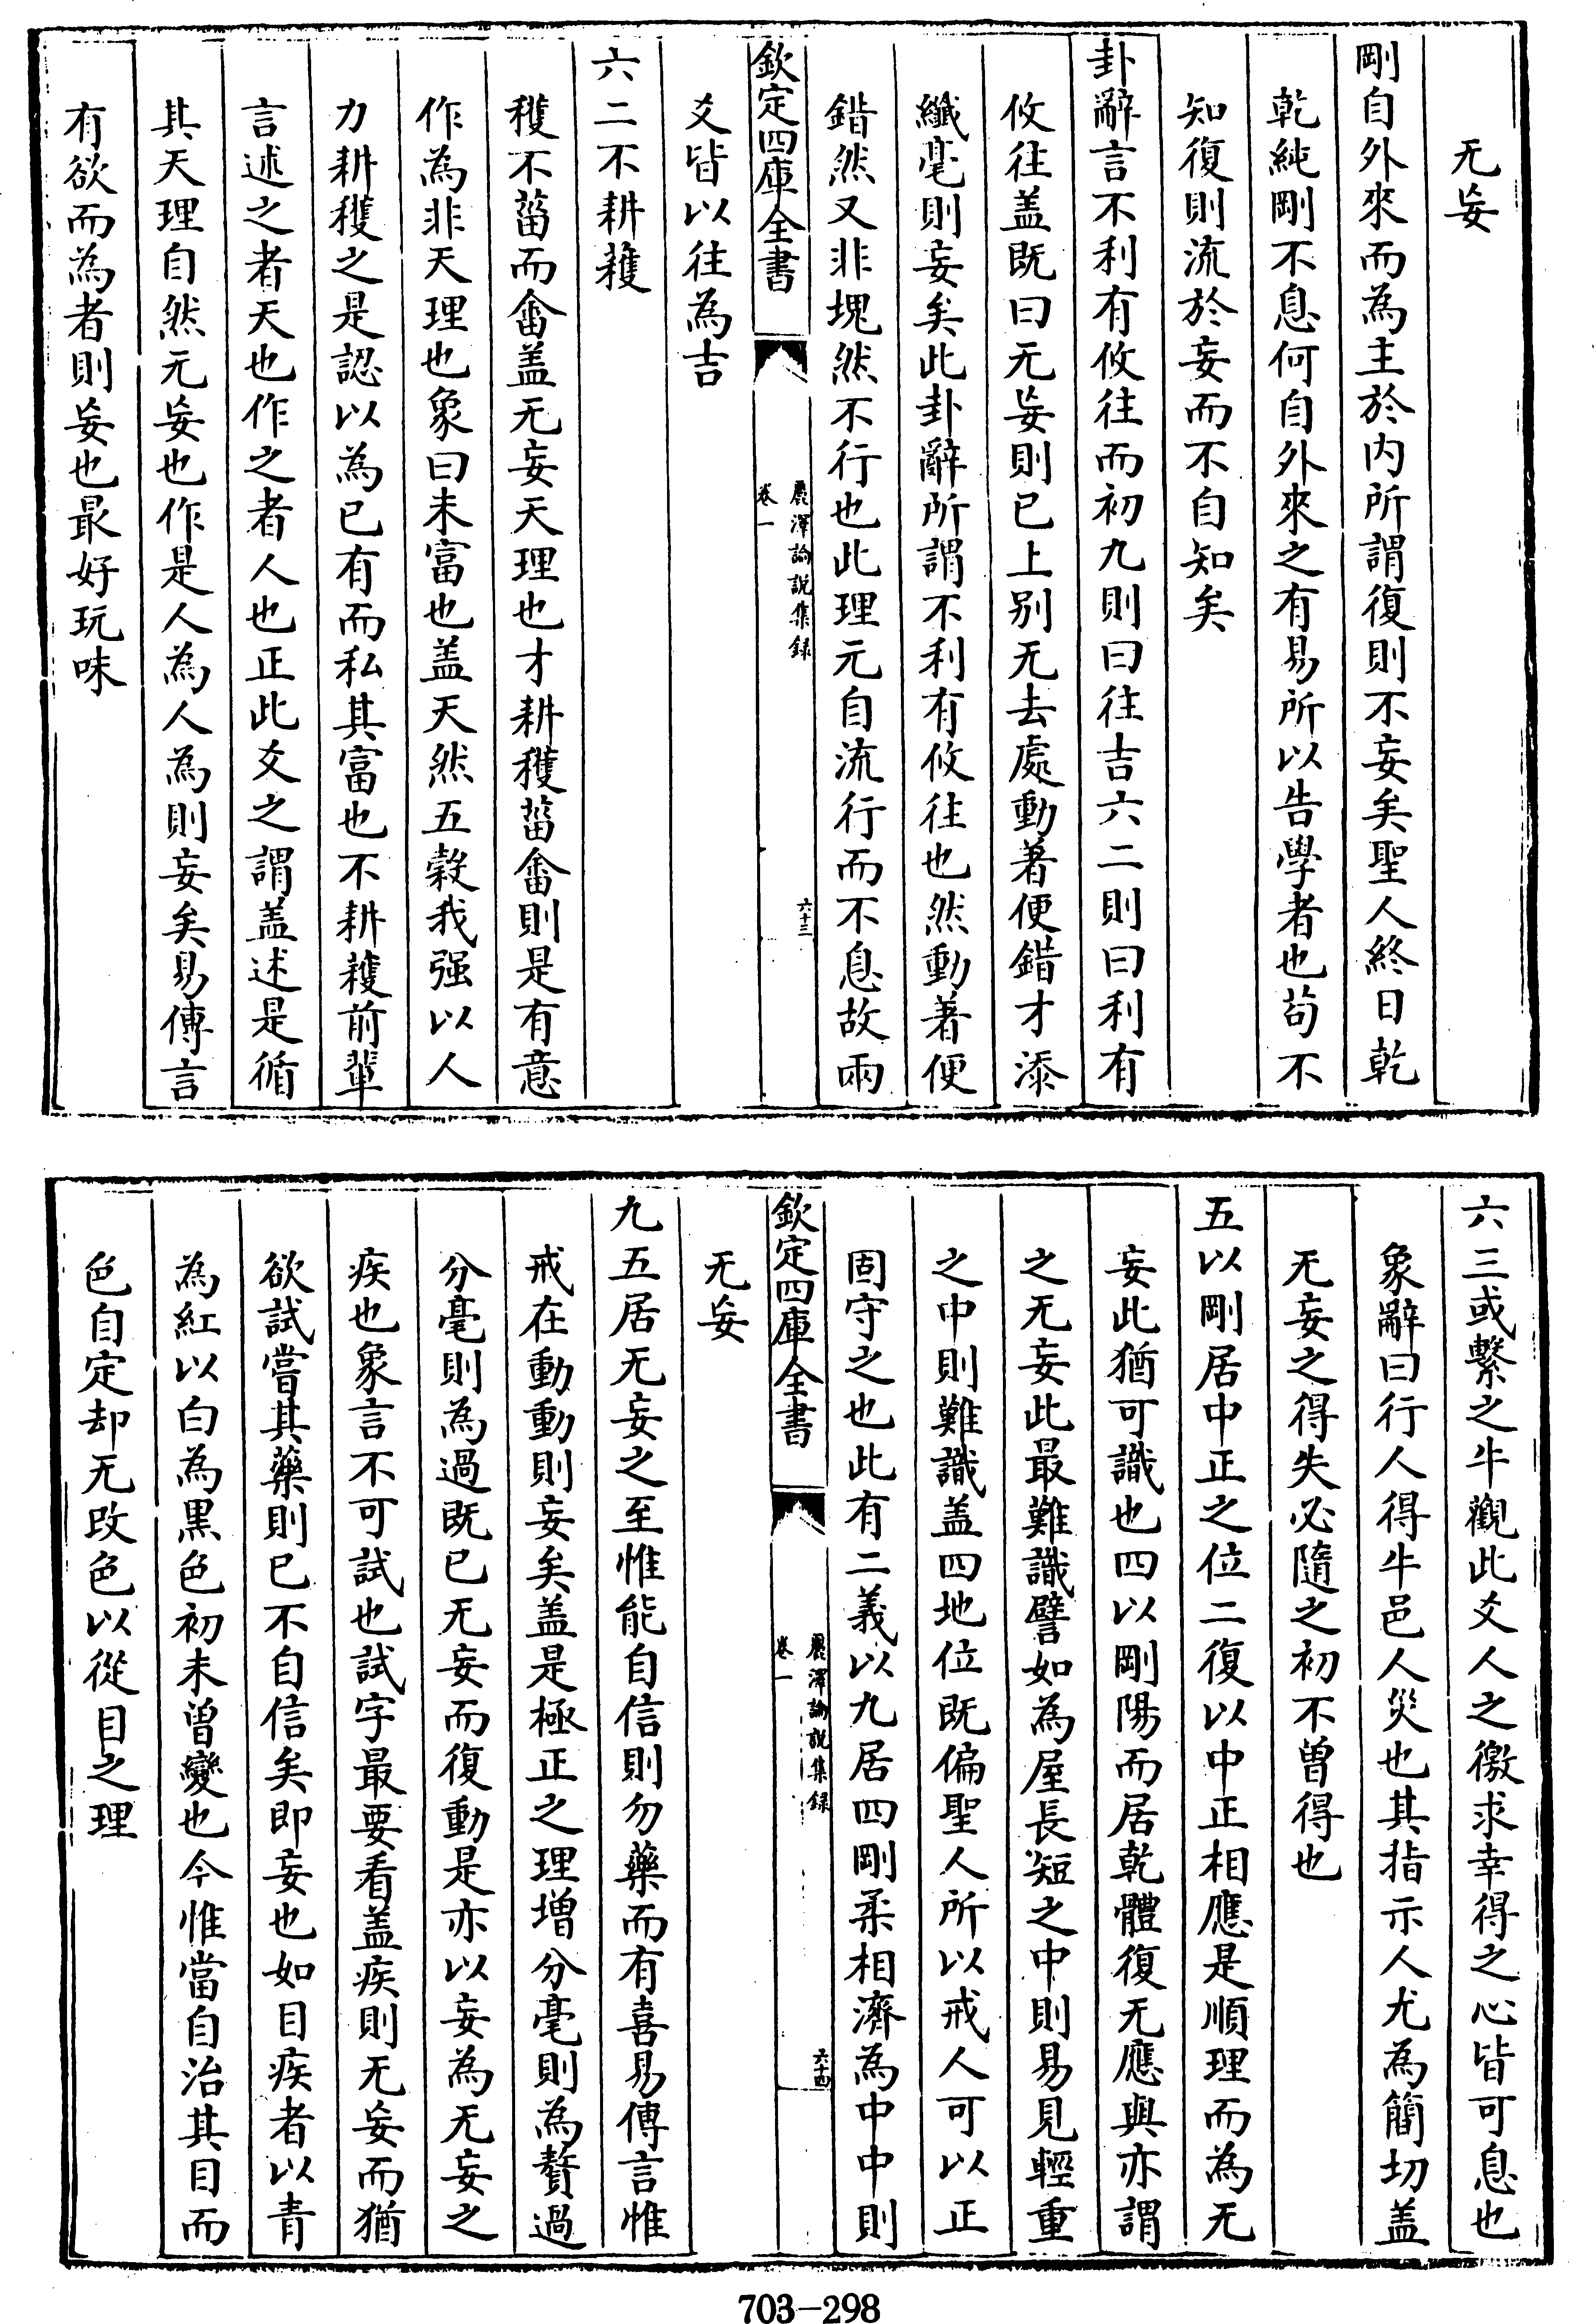 无妄
剛自外來而為主於内所謂復則不妄矣聖人終日乾
乾純剛不息何自外來之有易所以告學者也茍不
知復則流於妄而不自知矣
卦辭言不利有攸往而初九則曰往吉六二則曰利有
攸往盖既曰无妄則已上别无去處動著便錯才添
纖毫則妄矣此卦辭所謂不利有攸往也然動著便
錯然又非塊然不行也此理元自流行而不息故兩
欽定四庫全書
麗澤論説集録
卷一
六十三
爻皆以往為吉
六二不耕穫
穫不菑而畬盖无妄天理也才耕穫菑畬則是有意
作為非天理也象曰未富也盖天然五穀我强以人
力耕穫之是認以為已有而私其富也不耕穫前輩
言述之者天也作之者人也正此爻之謂盖述是循
其天理自然元妄也作是人為人為則妄矣易傳言
有欲而為者則妄也最好玩味
六三或繫之牛觀此爻人之徼求幸得之心皆可息也
象辭曰行人得牛邑人災也其指示人尤為簡切盖
无妄之得失必隨之初不曽得也
五以剛居中正之位二復以中正相應是順理而為无
妄此猶可識也四以剛陽而居乾體復无應與亦謂
之无妄此最難識譬如為屋長短之中則易見輕重
之中則難識盖四地位既偏聖人所以戒人可以正
固守之也此有二義以九居四剛柔相濟為中中則
欽定四庫全書
麗澤論説集録
卷一
六十四
无妄
九五居无妄之至惟能自信則勿藥而有喜易傳言惟
戒在動動則妄矣盖是極正之理增分毫則為贅過
分毫則為過既已无妄而復動是亦以妄為无妄之
疾也象言不可試也試字最要看盖疾則无妄而猶
欲試嘗其藥則已不自信矣即妄也如目疾者以青
為紅以白為黒色初未曽變也今惟當自治其目而
色自定却无改色以從目之理
703-298